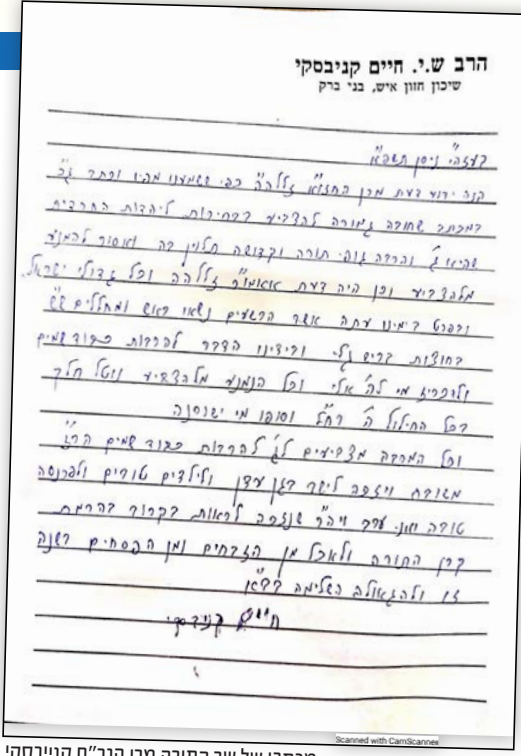 הרב ש.י. חיים קניבסקי
שיכון חזון איש, בני ברק
בעזהי ניסן תשפא
הנה ידוע דעת מרן החזוא זללהה כפי ששמענו מפיו וכתב גכ
במכתב שחובה גמורה להצביע בבחירות ליהדות החרדית
שהיא ג והרבה גופי תורה וקדושה תלוין בה ואסור להמנע
מלהצביע וכן היה דעת אאמור זללהה וכל גדולי ישראל
ובפרט בימינו עתה אשר הרשעים נשאו ראש ומחללים שש
בחוצות בריש גלי ובידינו הדבר להרבות כבוד שמים
ולהכריז מי לה אלי וכל הנמנע מלהצביע נוטל חלק
בכל החילול ה רחל וסופו מי ישורנה
וכל המרבה מצביעים לג להרבות כבוד שמים הרז
משובח ויזכה לישב בגן עדן ולילדים טובים ולפרנסה
טובה ואני ערב ויהר שנזכה לראות בקרוב בהרמת
קרן התורה ולאכל מן הזבחים ומן הפסחים בשנה
זו ולהגאולה השלימה בבא
חיים קניבסקי
Scanned with CamScanner
מכתבו של שר התורה מרן הגר"ח קנייבסקי